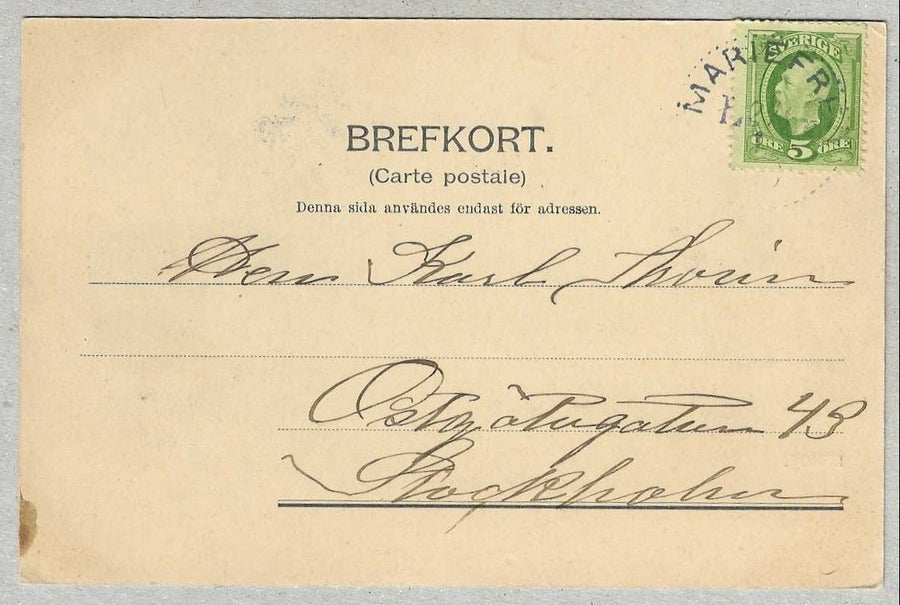 SVERIGE
MARIEFR
5
ÖRE ÖRE
BREFKORT.
(Carte postale)
Denna sida användes endast för adressen.
Herr Karl Thorin
Östgötagatan 43
Stockholm